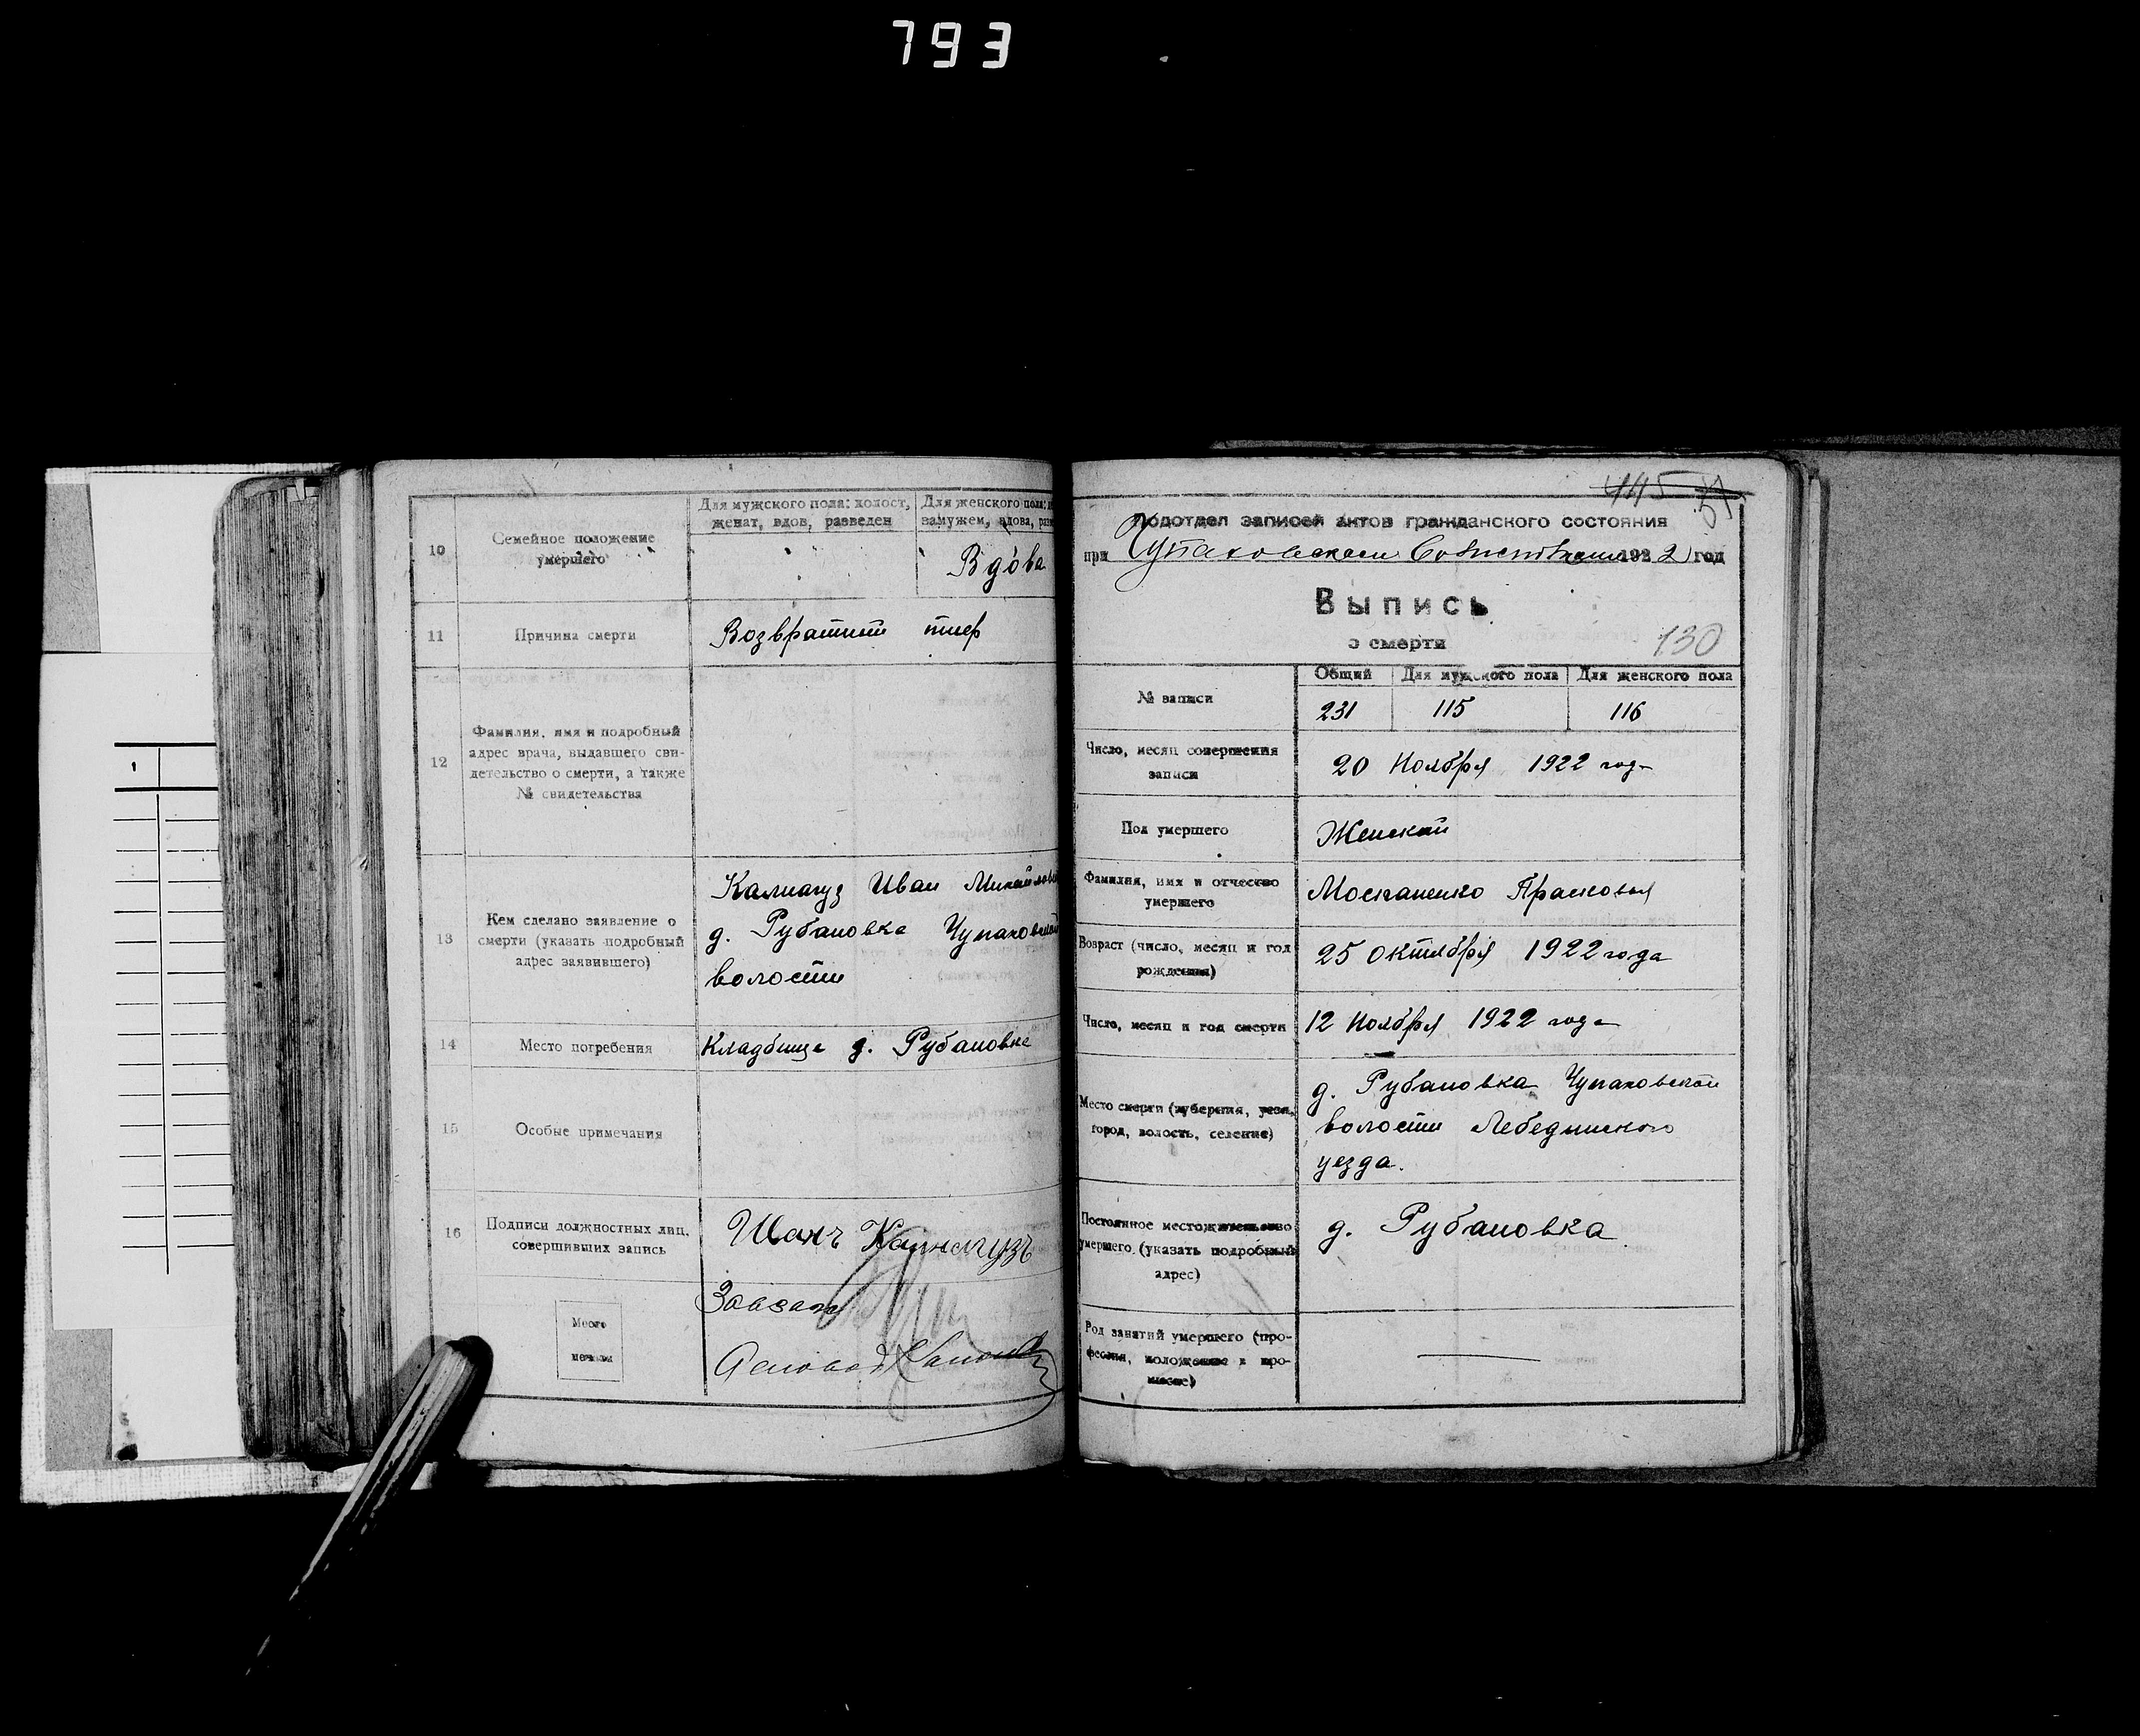 793
10
Семейное положение
умершего
Для мужского пола: холост,
женат, вдов, разведен
Для женского пола:
замужем, вдова,
Вдова
11
Причина смерти
Возвратный тиф
12
Фамилия, имя и подробный
адрес врача, выдавшего сви-
детельство о смерти, а также
№ свидетельства
13
Кем сделано заявление о
смерти (указать подробный
адрес заявившего)
Иван
д. Рубановка Чупаховской
волости
14
Место погребения
Кладбище д. Рубановка
15
Особые примечания
16
Подписи должностных лиц,
совершивших запись
Место
печати
445
подотдел записей актов гражданского состояния
при Чупаховском 1922 год
Выпись
о смерти
130
№ записи
Общий Для мужского пола Для женского пола
231 115 116
Число, месяц совершения
записи
20 Ноября 1922 года
Пол умершего
Женский
Фамилия, имя и отчество
умершего
Прасковья
Возраст (число, месяц и год
рождения)
25 октября 1922 года
Число, месяц и год смерти
12 Ноября 1922 года
Место смерти (губерния, уезд,
город, волость, селение)
д. Рубановка Чупаховской
волости Лебединского
уезда.
Постоянное местожительство
умершего (указать подробный
адрес)
д. Рубановка
Род занятий умершего (про-
фессия, положение в про-
мысле)
1